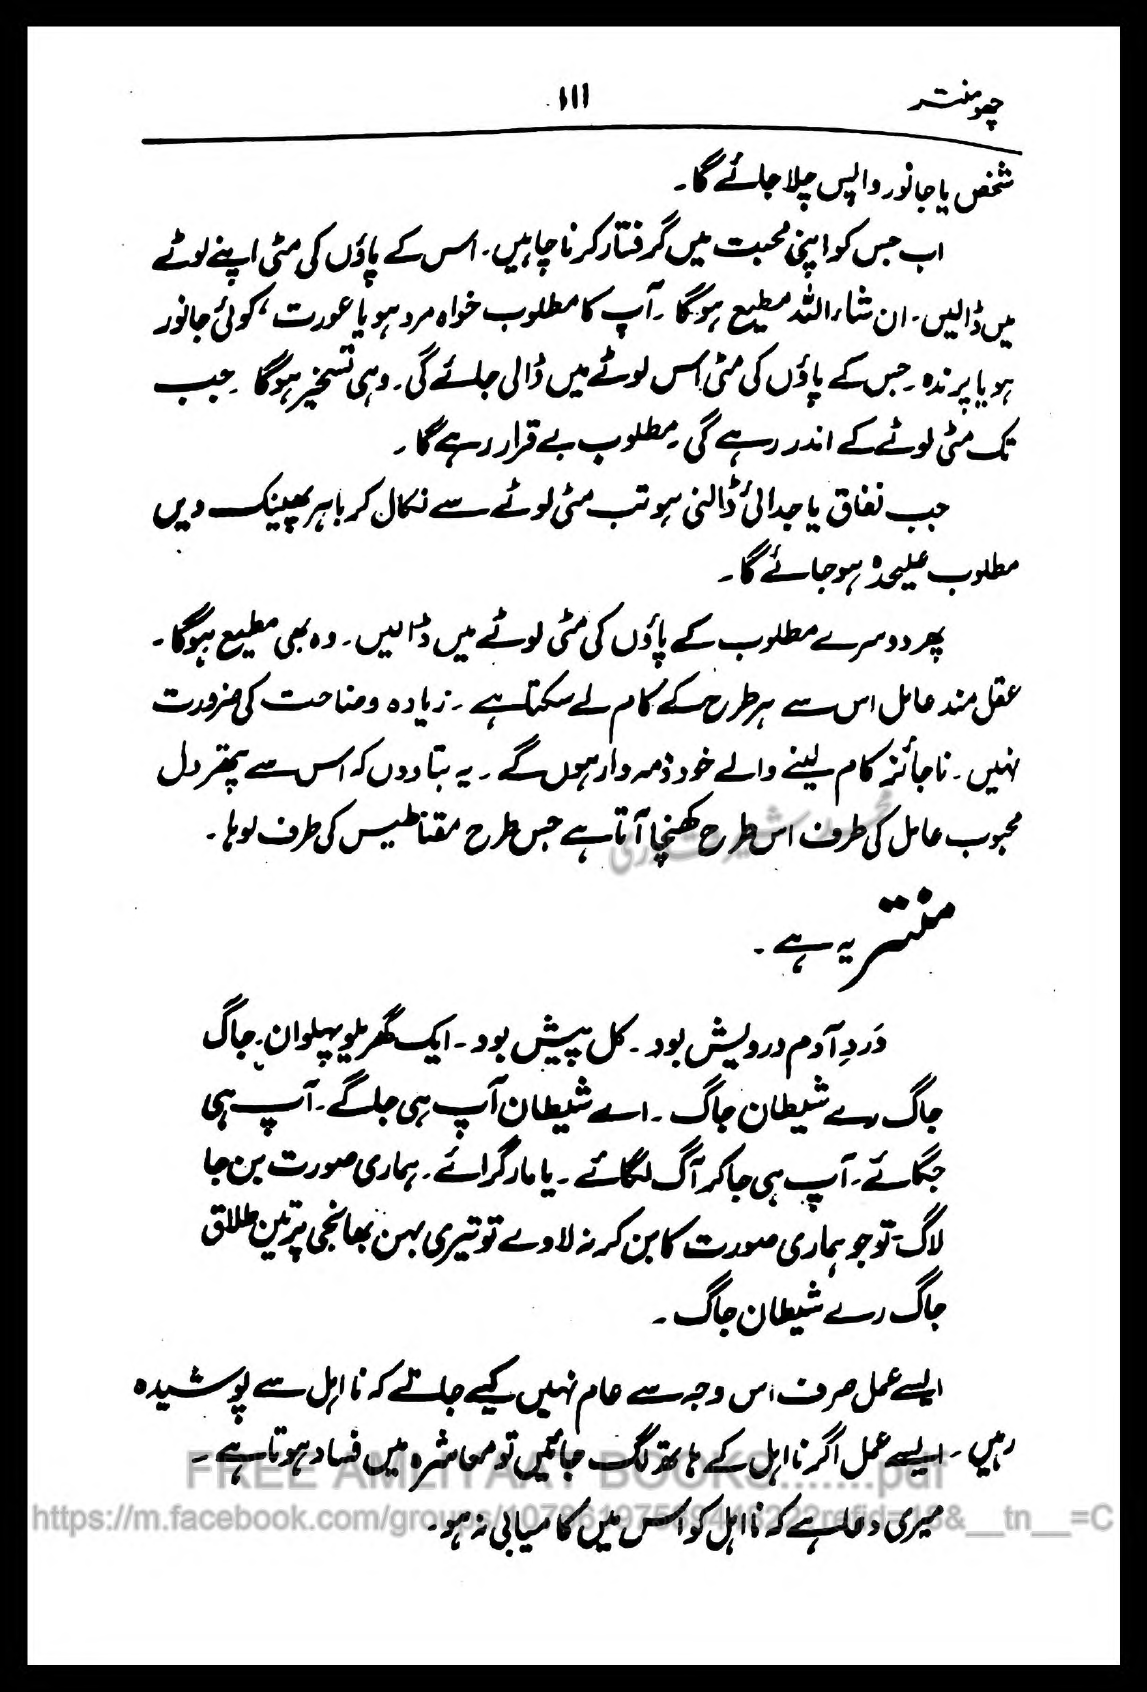 چھومنتر
١١١
شخص یا جانور واپس چلا جائے گا۔
اب جس کو اپنی محبت میں گرفتار کرنا چاہیں۔ اس کے پاؤں کی مٹی اپنے لوٹے
میں ڈالیں۔ ان شاء اللہ مطیع ہوگا۔ آپ کا مطلوب خواہ مرد ہو یا عورت، کوئی جانور
ہو یا پرندہ۔ جس کے پاؤں کی مٹی اس لوٹے میں ڈالی جائے گی۔ وہی تسخیر ہوگا۔ جب
تک مٹی لوٹے کے اندر رہے گی۔ مطلوب بے قرار رہے گا۔
جب نفاق یا جدائی ڈالنی ہو تب مٹی لوٹے سے نکال کر باہر پھینک دیں
مطلوب علیحدہ ہو جائے گا۔
پھر دوسرے مطلوب کے پاؤں کی مٹی لوٹے میں ڈالیں۔ وہ بھی مطیع ہوگا۔
عقل مند عامل اس سے ہر طرح کے کام لے سکتا ہے۔ زیادہ وضاحت کی ضرورت
نہیں۔ ناجائز کام لینے والے خود ذمہ دار ہوں گے۔ یہ بتا دوں کہ اس سے پتھر دل
محبوب عامل کی طرف اس طرح کھنچا آتا ہے جس طرح مقناطیس کی طرف لوہا۔
منتر یہ ہے۔
دَردِ آدم درویش بود۔ کل پیش بود۔ ایک گھریلو پہلوان۔ جاگ
جاگ رے شیطان جاگ۔ اے شیطان آپ ہی جلگے۔ آپ ہی
جگائے۔ آپ ہی جا کر آگ لگائے۔ یا مار گرائے۔ ہماری صورت بن جا
لاگ۔ تو جو ہماری صورت کا بن کر نہ لاوے تو تیری بہن بھانجی پر تین طلاق
جاگ رے شیطان جاگ۔
ایسے عمل صرف اس وجہ سے عام نہیں کیے جاتے کہ نااہل سے پوشیدہ
رہیں۔ ایسے عمل اگر نااہل کے ہاتھ لگ جائیں تو معاشرہ میں فساد ہوتا ہے۔
FREE AMLIYAAT BOOKS.......pdf
میری دعا ہے کہ نااہل کو اس میں کامیابی نہ ہو۔